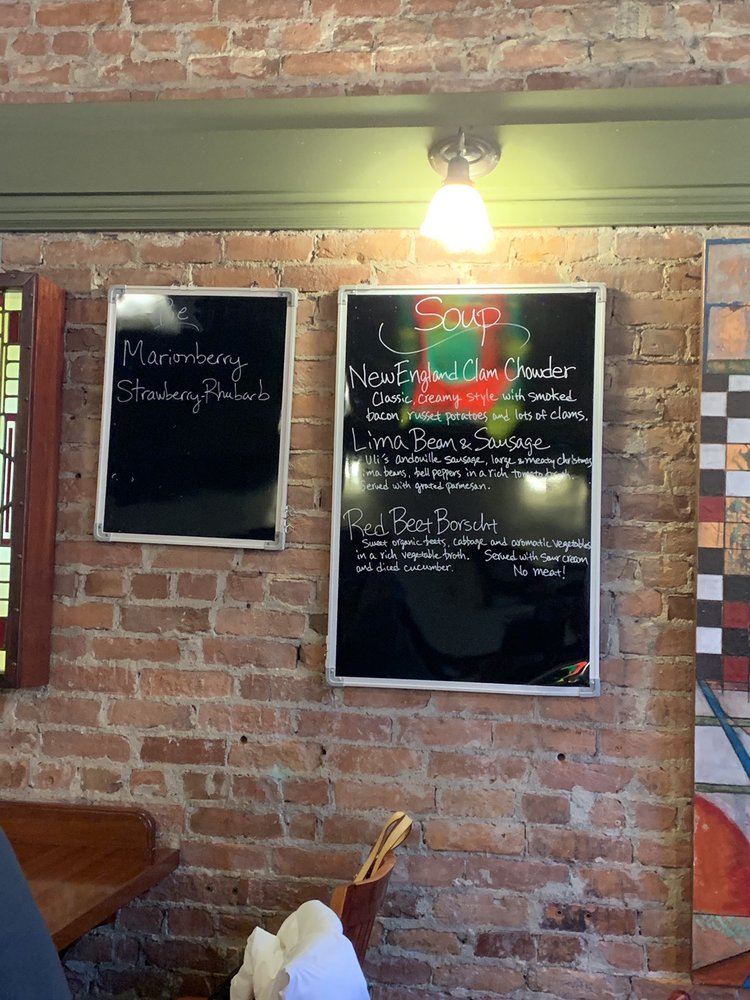 Pie
Marionberry
Strawberry-Rhubarb
Soup
New England Clam Chowder
Classic creamy style with smoked
bacon, russet potatoes and lots of clams.
Lima Bean & Sausage
Uli's andouille sausage, large & meaty christmas
lima beans, bell peppers in a rich tomato broth.
Served with grated parmesan.
Red Beet Borscht
Sweet organic beets, cabbage and aromatic vegetables
in a rich vegetable broth. Served with sour cream
and diced cucumber. No meat!